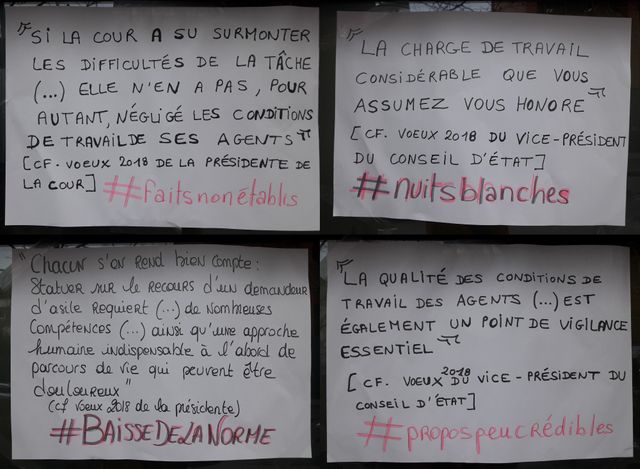 " SI LA COUR A SU SURMONTER
LES DIFFICULTÉS DE LA TÂCHE
(...) ELLE N'EN A PAS, POUR
AUTANT, NÉGLIGÉ LES CONDITIONS
DE TRAVAIL DE SES AGENTS "
[CF. VOEUX 2018 DE LA PRÉSIDENTE DE
LA COUR] #faitsnonétablis
" LA CHARGE DE TRAVAIL
CONSIDÉRABLE QUE VOUS
ASSUMEZ VOUS HONORE "
[CF. VOEUX 2018 DU VICE-PRÉSIDENT
DU CONSEIL D'ÉTAT]
#nuitsblanches
" Chacun s'en rend bien compte :
Statuer sur le recours d'un demandeur
d'asile requiert (...) de nombreuses
compétences (...) ainsi qu'une approche
humaine indispensable à l'abord de
parcours de vie qui peuvent être
douloureux "
(cf voeux 2018 de la présidente)
#BAISSEDELANORME
" LA QUALITÉ DES CONDITIONS DE
TRAVAIL DES AGENTS (...) EST
ÉGALEMENT UN POINT DE VIGILANCE
ESSENTIEL "
[CF. VOEUX 2018 DU VICE-PRÉSIDENT DU
CONSEIL D'ÉTAT]
#propospeucrédibles